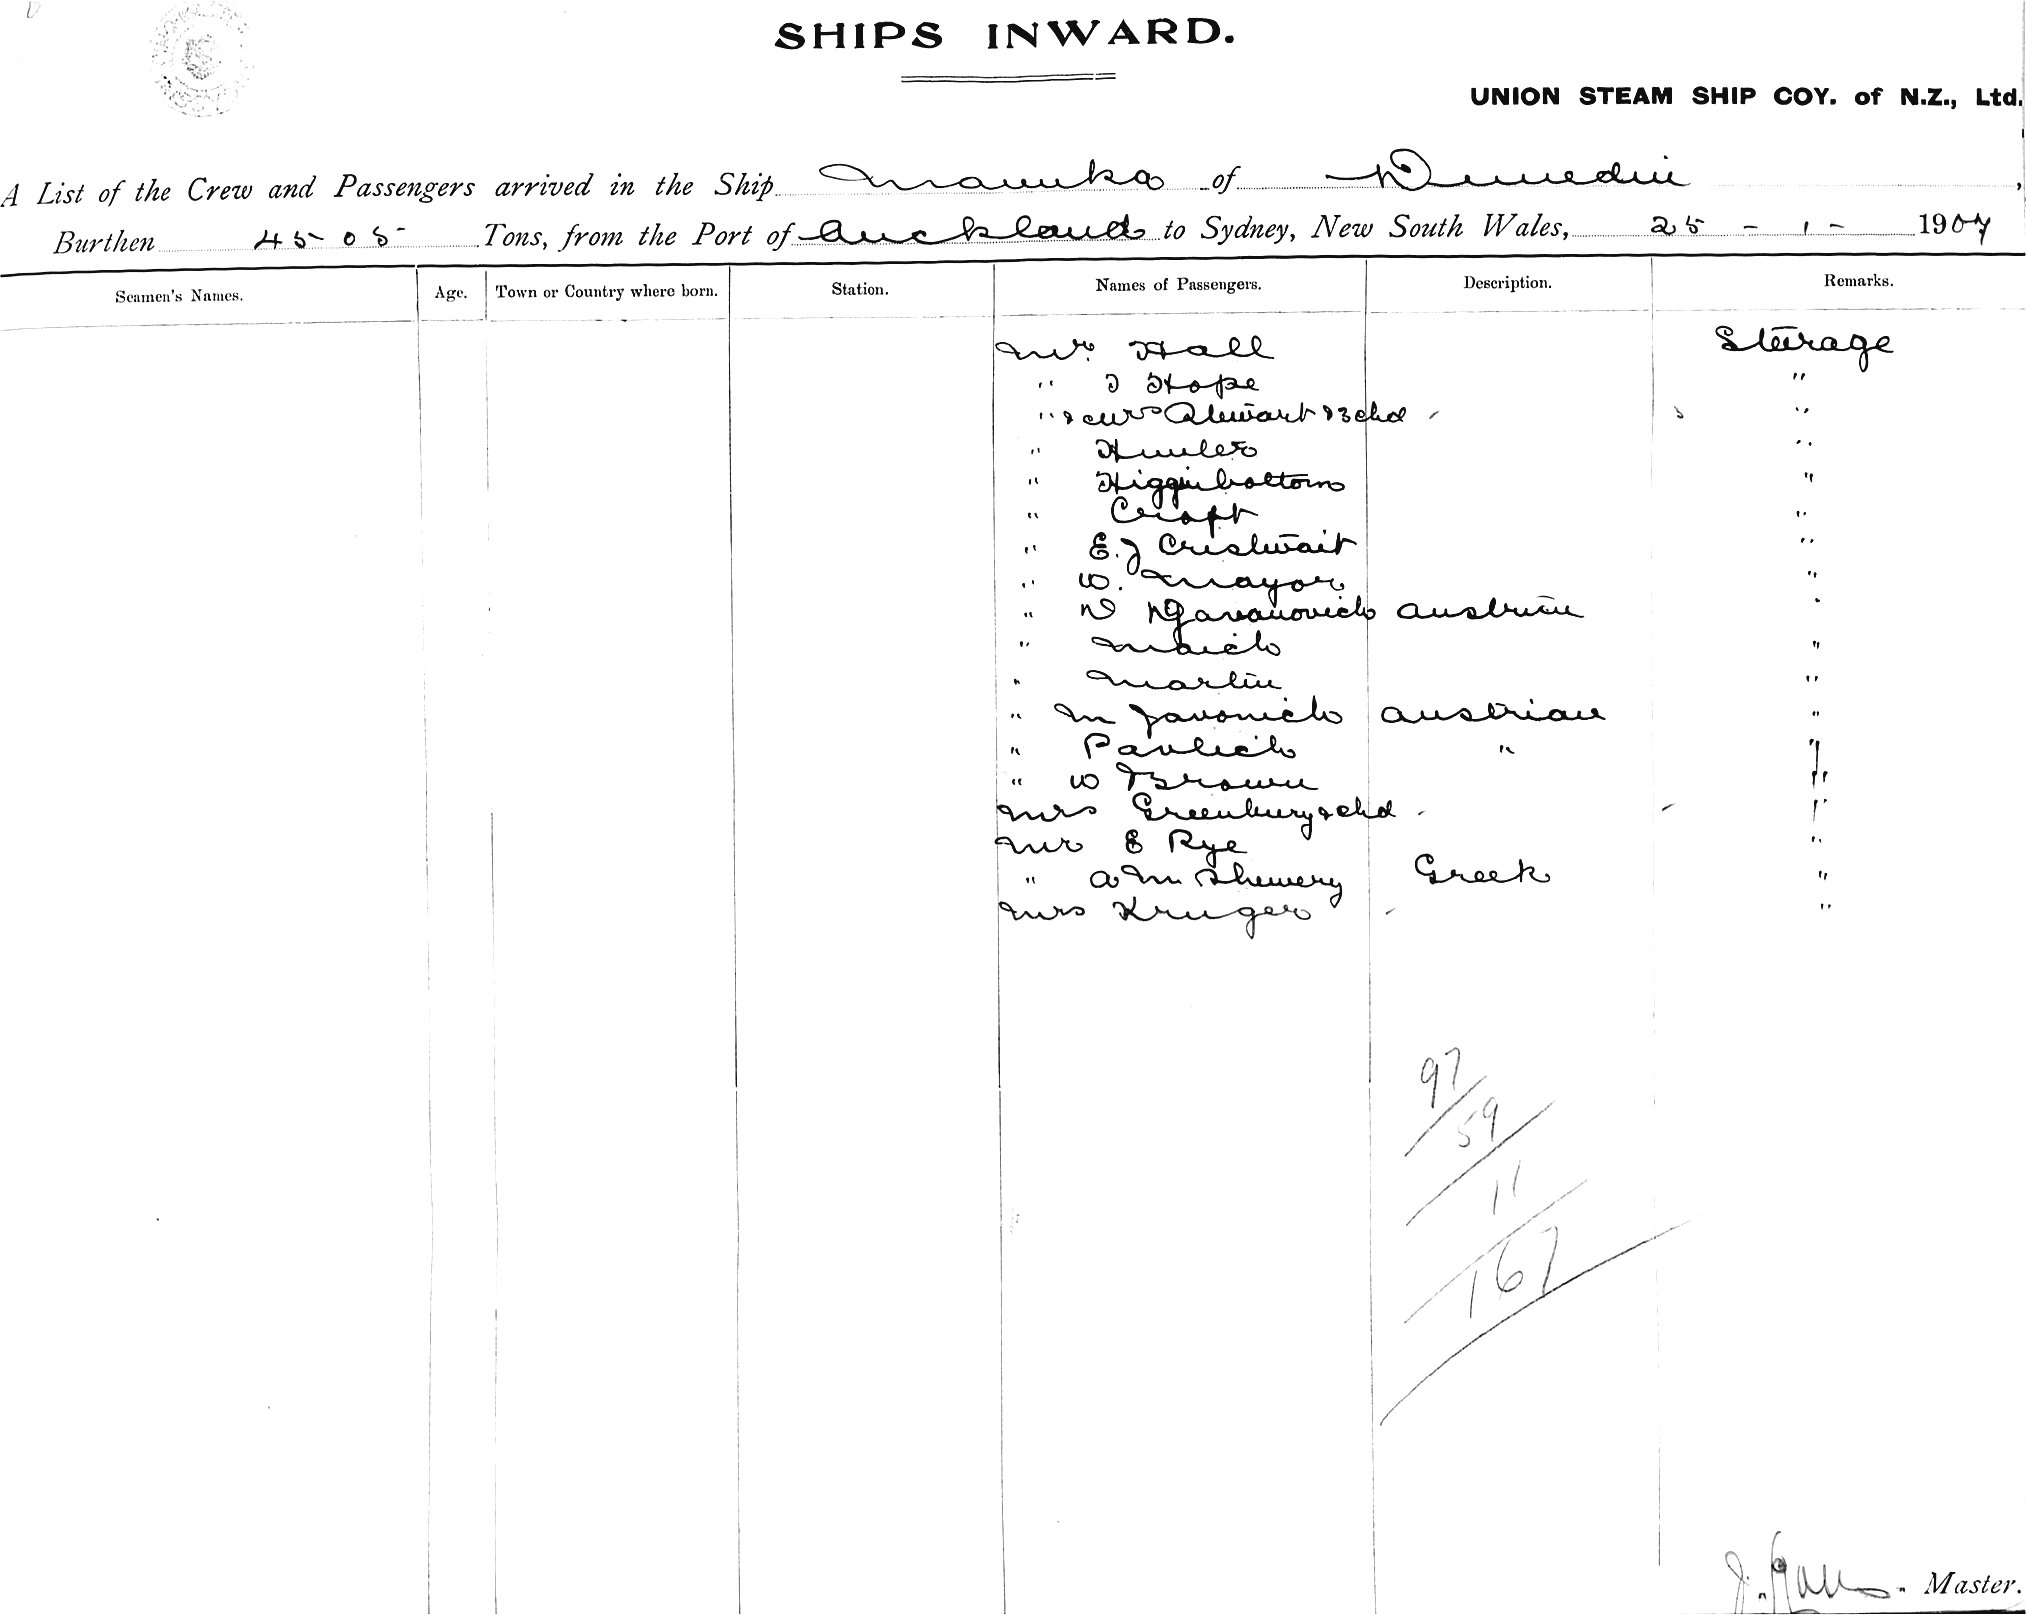 SHIPS INWARD.
UNION STEAM SHIP COY. of N.Z., Ltd.
A List of the Crew and Passengers arrived in the Ship Manuka of Dunedin,
Burthen 4505 Tons, from the Port of Auckland to Sydney, New South Wales, 25 - 1 - 1907
Seamen's Names. Age. Town or Country where born. Station. Names of Passengers. Description. Remarks.
Mr. Hall Sterage
" J Hope "
" & Mrs Stewart & 3 chd "
" Hunter "
" Higginbottom "
" Croft "
" E. J Cristwait "
" W. Mayor "
" N Austrian "
" "
" Martin "
" M Javonich Austrian "
" Pavlich " "
" W Brown "
Mrs Greenbury & chd "
Mr E Rye "
" A M Shewery Greek "
Mrs Kruger "
97
59
11
167
J. Master.